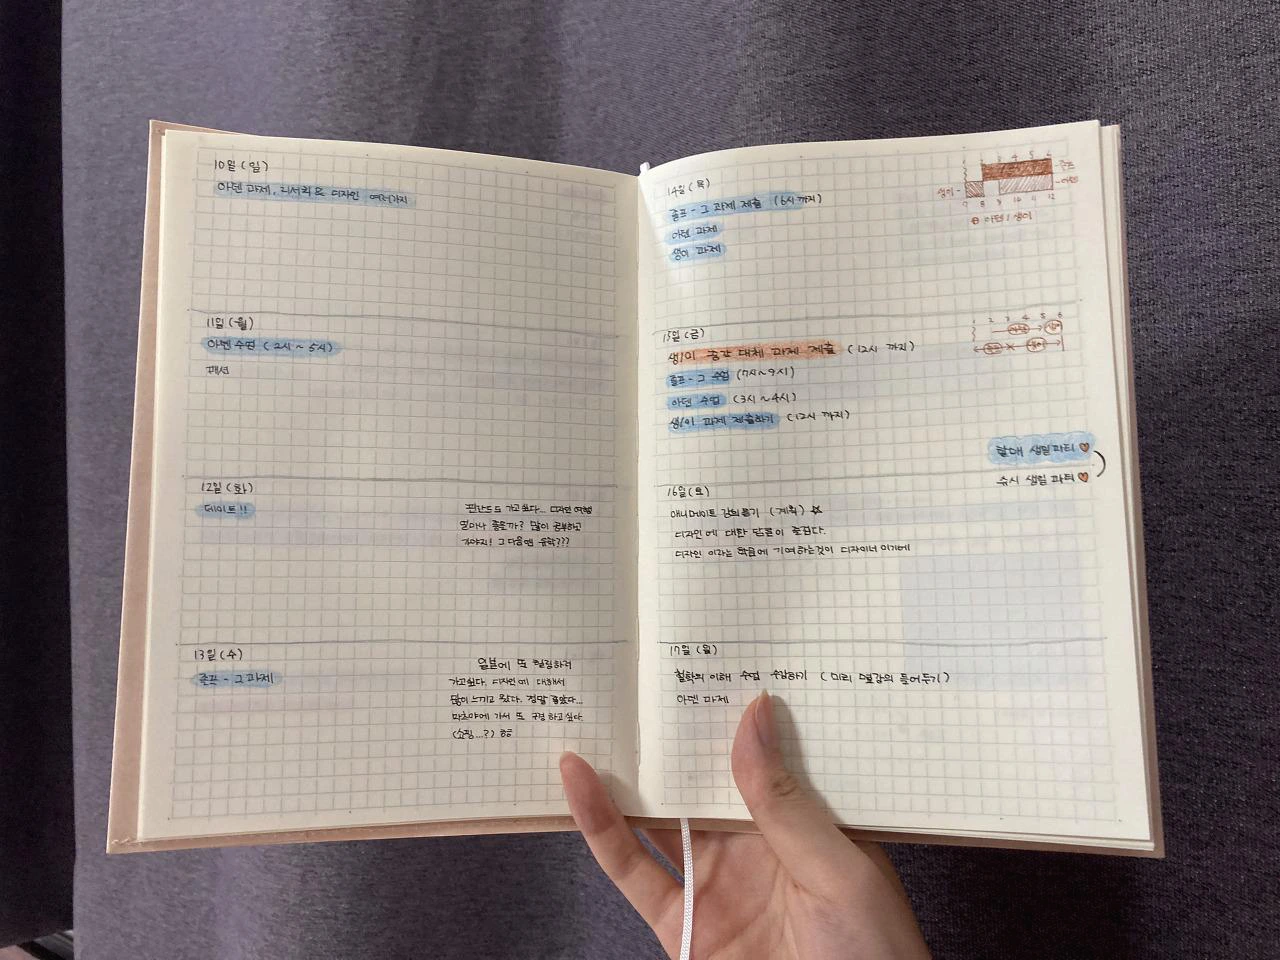 10일 (일)
아덴 과제, 리서치 & 디자인 여러가지
11일 (월)
아덴 수업 (2시 ~ 5시)
패션
12일 (화)
데이트!!
핀란드도 가고싶다... 디자인 여행
얼마나 좋을까? 많이 공부하고
가야지! 그 다음엔 유학???
13일 (수)
졸프 - 그 과제
일본에 또 힐링하러
가고싶다. 디자인에 대해서
많이 느끼고 왔다. 정말 좋았다...
마츠야에 가서 또 구경 하고싶다.
(쇼핑...?) ㅎㅎ
14일 (목)
졸프 - 그 과제 제출 (6시 까지)
아덴 과제
생이 과제
1 2 3 4 5 6
졸프
생이 - 아덴
7 8 9 10 11 12
아덴 / 생이
15일 (금)
생/이 공강 대체 과제 제출 (12시 까지)
졸프 - 그 수업 (7시~9시)
아덴 수업 (3시~4시)
생/이 과제 제출하기 (12시 까지)
1 2 3 4 5 6
할매 생일파티
슈시 생일 파티
16일 (토)
애니메이트 강의듣기 (계획) ☆
디자인에 대한 담론이 즐겁다.
디자인 이라는 학문에 기여하는것이 디자이너 이기에
17일 (월)
철학의 이해 수업 수강하기 (미리 몇강의 들어두기)
아덴 과제